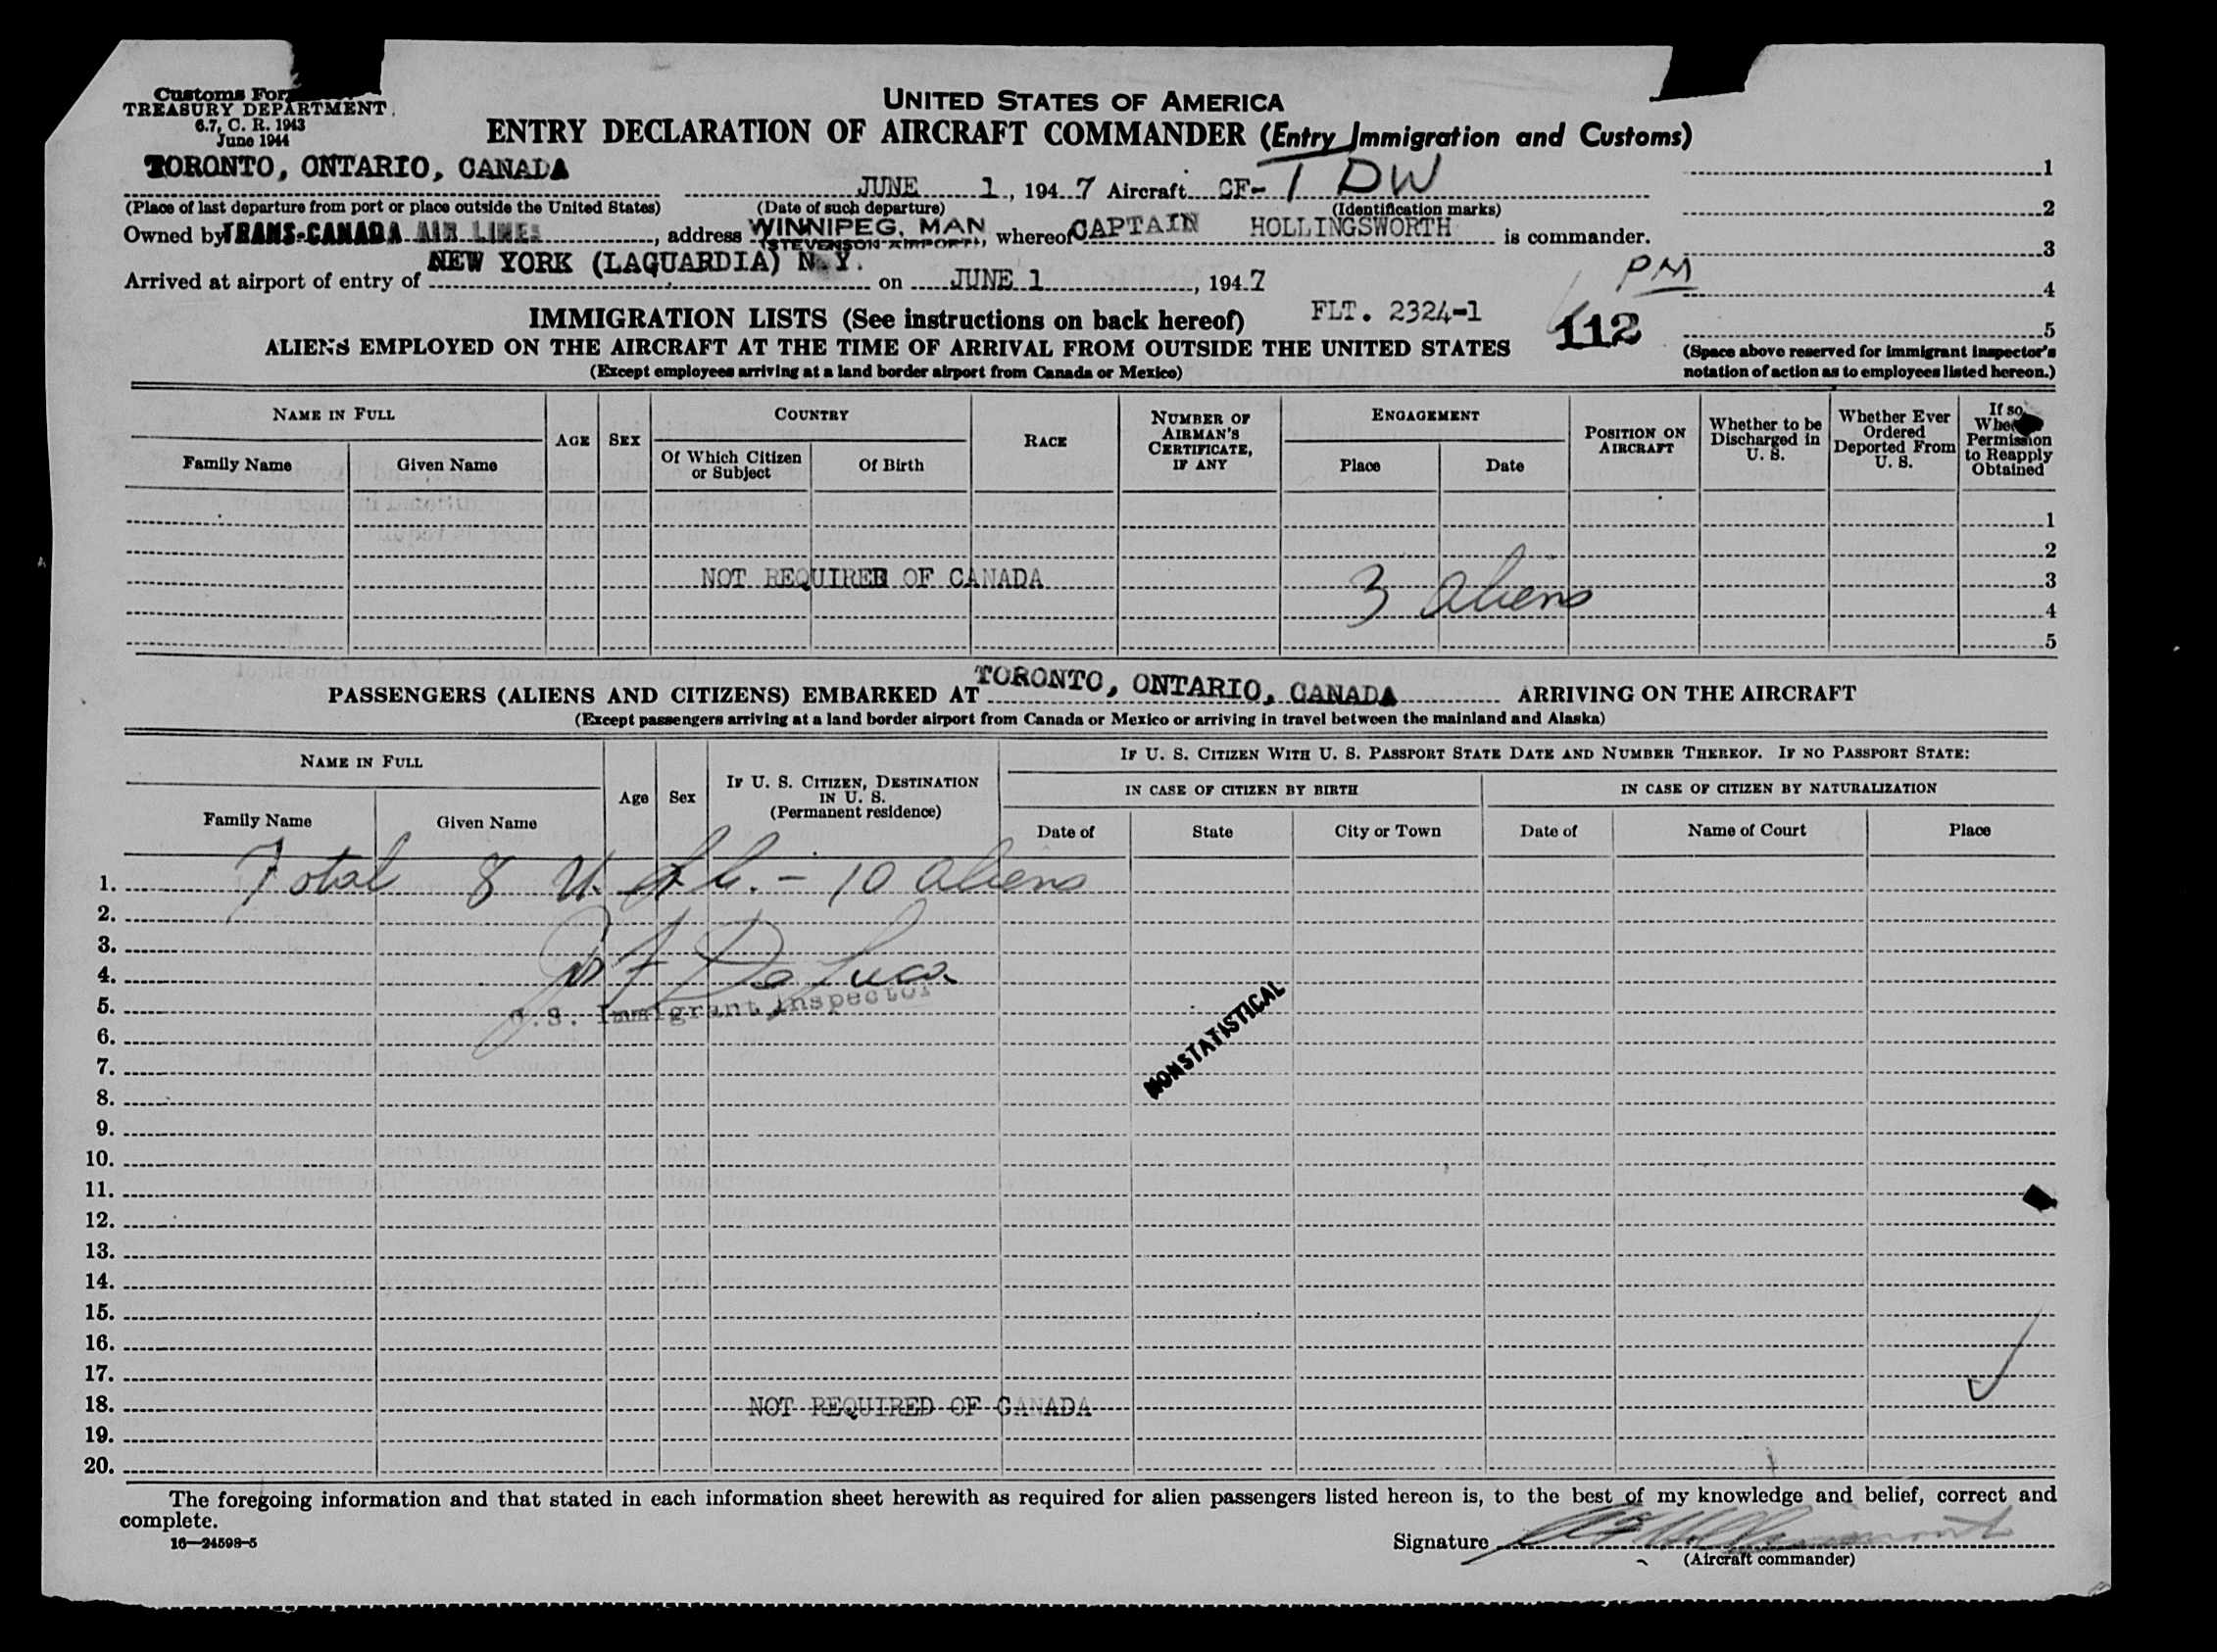 Customs For
TREASURY DEPARTMENT
6.7, C. R. 1943
June 1944
UNITED STATES OF AMERICA
ENTRY DECLARATION OF AIRCRAFT COMMANDER (Entry Immigration and Customs)
TORONTO, ONTARIO, CANADA JUNE 1, 1947 Aircraft CF-TDW 1
(Place of last departure from port or place outside the United States) (Date of such departure) (Identification marks) 2
Owned by TRANS-CANADA AIR LINES, address WINNIPEG, MAN (STEVENSON AIRPORT), whereof CAPTAIN HOLLINGSWORTH is commander.
3
Arrived at airport of entry of NEW YORK (LAGUARDIA) N.Y. on JUNE 1, 1947 PM
4
IMMIGRATION LISTS (See instructions on back hereof) FLT. 2324-1 112 5
ALIENS EMPLOYED ON THE AIRCRAFT AT THE TIME OF ARRIVAL FROM OUTSIDE THE UNITED STATES
(Except employees arriving at a land border airport from Canada or Mexico)
(Space above reserved for immigrant inspector's
notation of action as to employees listed hereon.)
NAME IN FULL
Family Name Given Name
AGE SEX
COUNTRY
Of Which Citizen or Subject Of Birth
RACE
NUMBER OF AIRMAN'S CERTIFICATE, IF ANY
ENGAGEMENT
Place Date
POSITION ON AIRCRAFT
Whether to be Discharged in U. S.
Whether Ever Ordered Deported From U. S.
If so, Permission to Reapply Obtained
1
2
NOT REQUIRED OF CANADA 3 aliens 3
4
5
PASSENGERS (ALIENS AND CITIZENS) EMBARKED AT TORONTO, ONTARIO, CANADA ARRIVING ON THE AIRCRAFT
(Except passengers arriving at a land border airport from Canada or Mexico or arriving in travel between the mainland and Alaska)
NAME IN FULL
Family Name Given Name
Age Sex
IF U. S. CITIZEN, DESTINATION IN U. S. (Permanent residence)
IF U. S. CITIZEN WITH U. S. PASSPORT STATE DATE AND NUMBER THEREOF. IF NO PASSPORT STATE:
IN CASE OF CITIZEN BY BIRTH IN CASE OF CITIZEN BY NATURALIZATION
Date of State City or Town Date of Name of Court Place
1. Total 8 U.S.C. - 10 aliens
2.
3.
4. De Luca
5. U.S. Immigrant Inspector
6.
7. NONSTATISTICAL
8.
9.
10.
11.
12.
13.
14.
15.
16.
17.
18. NOT REQUIRED OF CANADA
19.
20.
The foregoing information and that stated in each information sheet herewith as required for alien passengers listed hereon is, to the best of my knowledge and belief, correct and
complete.
16—24598-5
Signature
(Aircraft commander)